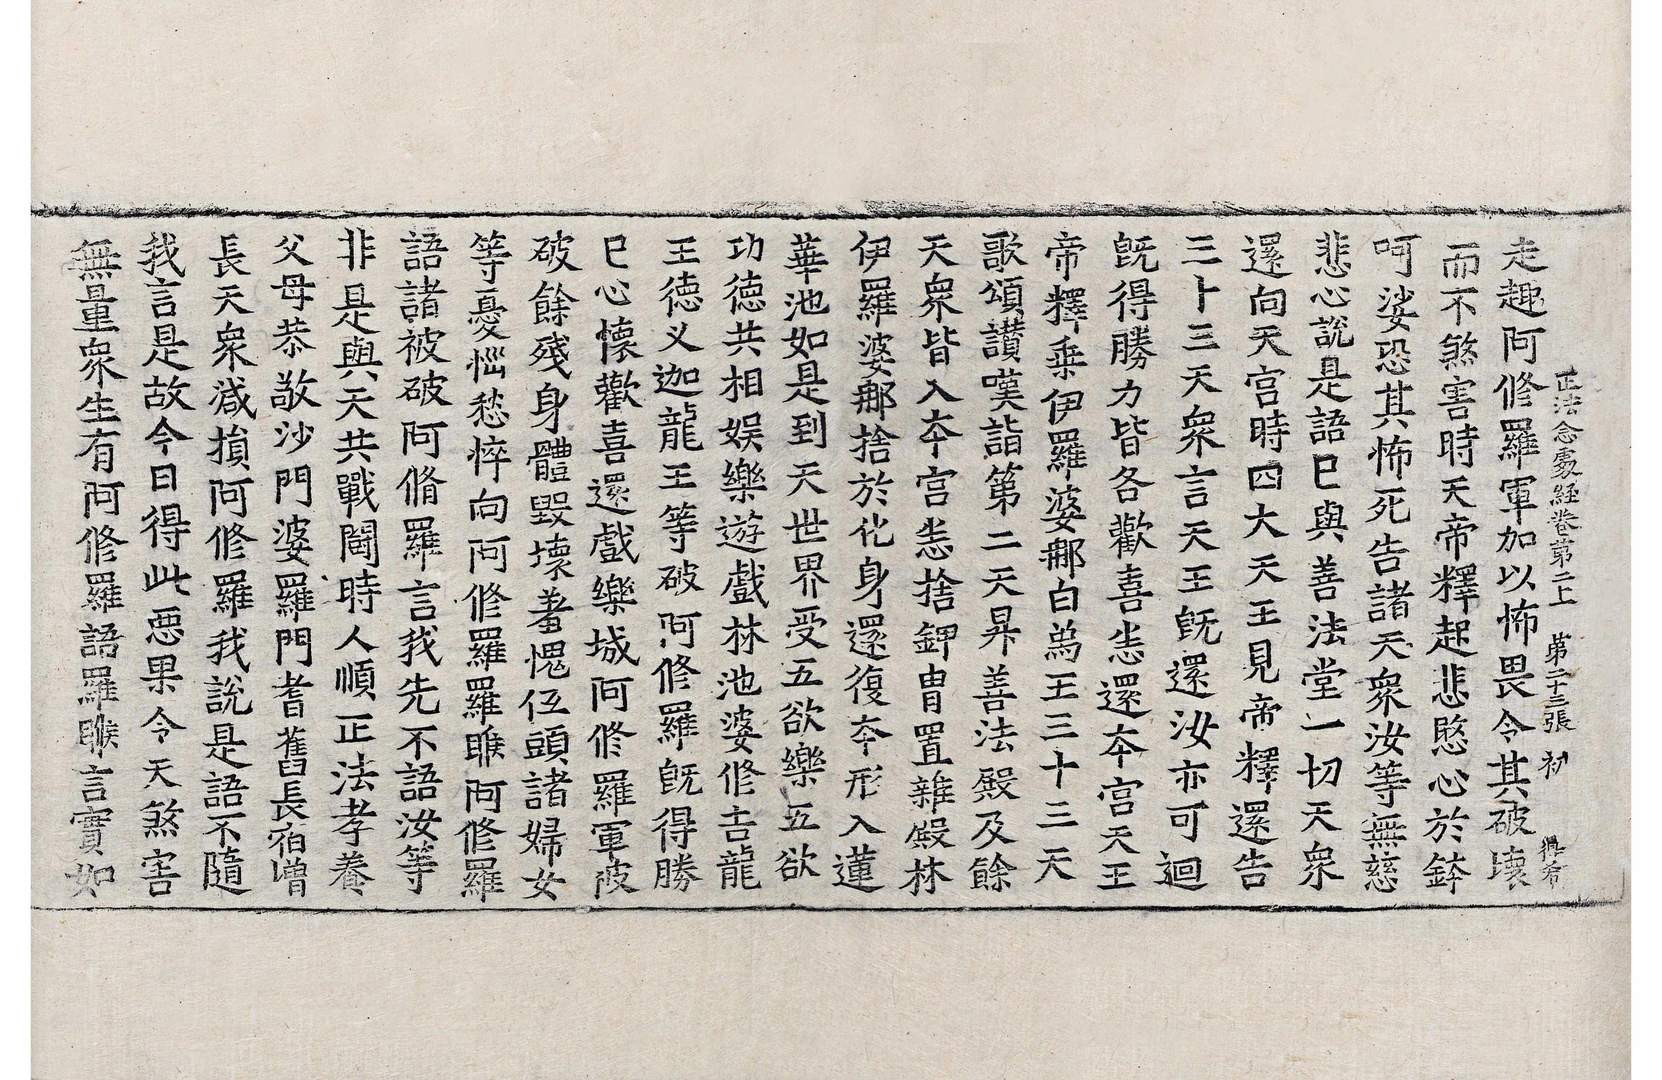 正法念處経卷第二上 第二十三張 初
走趣阿修羅軍加以怖畏令其破壞
而不煞害時天帝釋起悲愍心於鉢
呵娑恐其怖死告諸天衆汝等無慈
悲心說是語已與善法堂一切天衆
還向天宮時四大天王見帝釋還告
三十三天衆言天王旣還汝亦可迴
旣得勝力皆各歡喜悉還本宮天王
帝釋乗伊羅婆那白為王三十三天
歌頌讃嘆詣第二天昇善法殿及餘
天衆皆入本宮悉捨鉀冑置雜殿林
伊羅婆那捨於化身還復本形入蓮
華池如是到天世界受五欲樂五欲
功德共相娛樂遊戲林池婆修吉龍
王德叉迦龍王等破阿修羅旣得勝
已心懷歡喜還戲樂城阿修羅軍破
破餘殘身體毀壞羞愧低頭諸婦女
等憂惱愁悴向阿修羅羅睺阿修羅
語諸被破阿脩羅言我先不語汝等
非是與天共戰鬪時人順正法孝養
父母恭敬沙門婆羅門耆舊長宿增
長天衆減損阿修羅我說是語不隨
我言是故今日得此惡果令天煞害
無量衆生有阿修羅語羅睺言實如